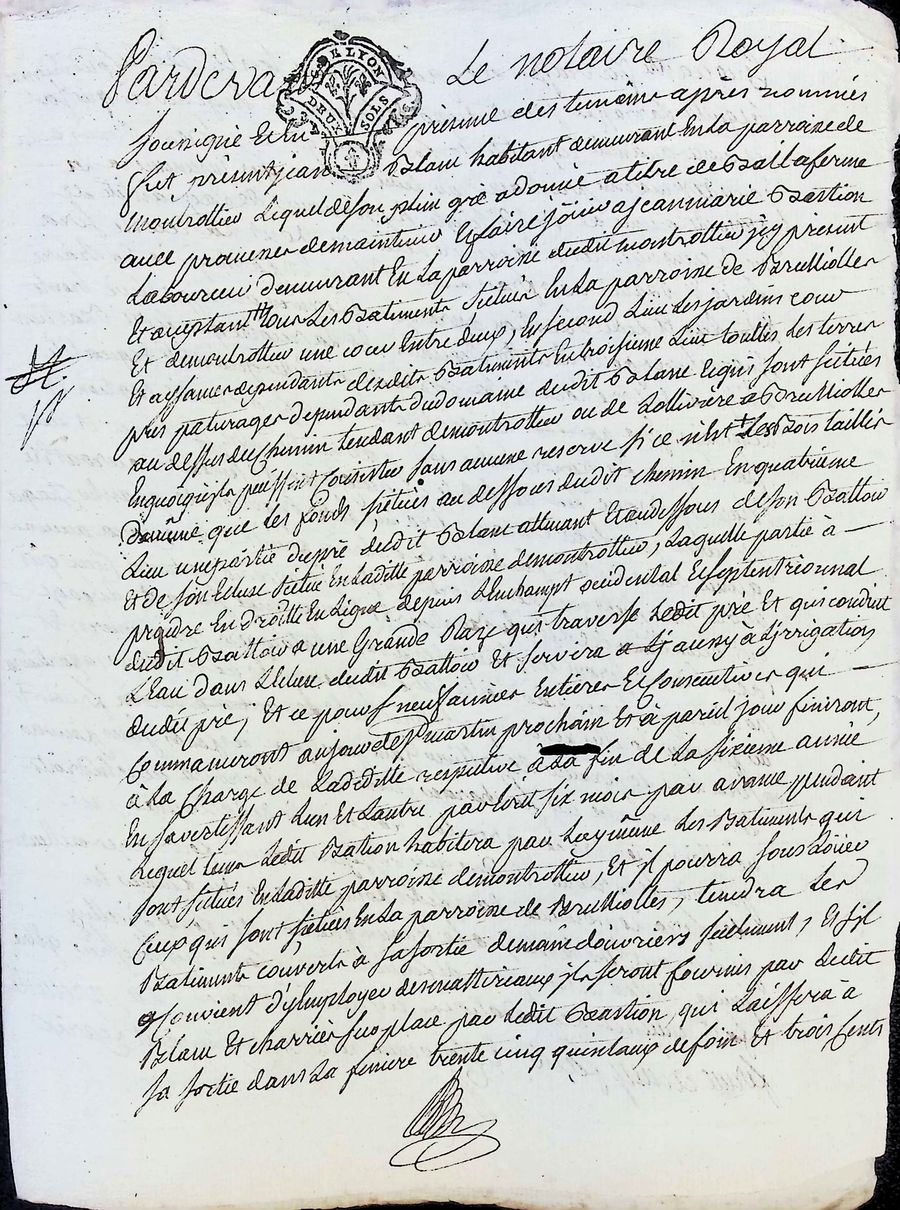 Pardevant Le notaire Royal
DE LYON
DEUX SOLS
soussigné Et en présence des temoins après nommés
fut présent jean Blanc habitant demeurant En La parroisse de
montrottier Lequel de son plein gré a donné a titre de Bail a ferme
avec promesse de maintenir Et faire jouir a jean marie Bastion
Laboureur demeurant En La parroisse dudit montrottier jcy présent
Et acceptant tous Les Batiments scitués En La parroisse de Brullioles
Et de montrottier une cour Entre deux, En second Lieu Les jardins cour
Et aysances dependants desdits Batiments En troisieme Lieu touttes les terres
prés paturages dependants du domaine dudit Blanc Et qui sont scitués
au dessus du Chemin tendant de montrottier ou de Lollivière a Brullioles
En quoi qu'ils puissent consister sans aucune reserve si ce n'est Les Bois taillis
de même que les fonds scitués au dessous dudit chemin En quatrieme
Lieu une partie du pré dudit Blanc attenant Et au dessous de son Battoir
Et de son Ecluse scitué En Laditte parroisse de montrottier, Laquelle partie à
prendre En droitte En Ligne depuis L'Enchampt occidental Et septentrionnal
dudit Battoir a une Grande Raze qui traverse Ledit pré Et qui conduit
L'Eau dans L'Ecluse dudit Battoir Et servira a L'jrrigation
dudit pré; Et ce pour neuf années Entieres Et Consecutives qui
Commanceront aujour et st martin prochain Et à pareil jour finiront,
à La Charge de La déditte respective à La fin de La sixieme année
En s'avertissant L'un Et L'autre par Ecrit six mois par avance pendant
Lequel tems Ledit Bastion habitera par Luy même Les Batiments qui
sont scitués En Laditte parroisse de montrottier, Et jl pourra sous Loüer
Ceux qui sont scitués En La parroisse de Brullioles, tiendra Les
Batiments couverts à sa sortie de main d'ouvriers seulement, Et s'jl
Convient d'y Employer des matteriaux jls seront fournis par Ledit
Blanc Et charriés sur place par Ledit Bastion, qui Laissera à
sa sortie dans La feniere trente cinq quintaux de foin Et trois Cents